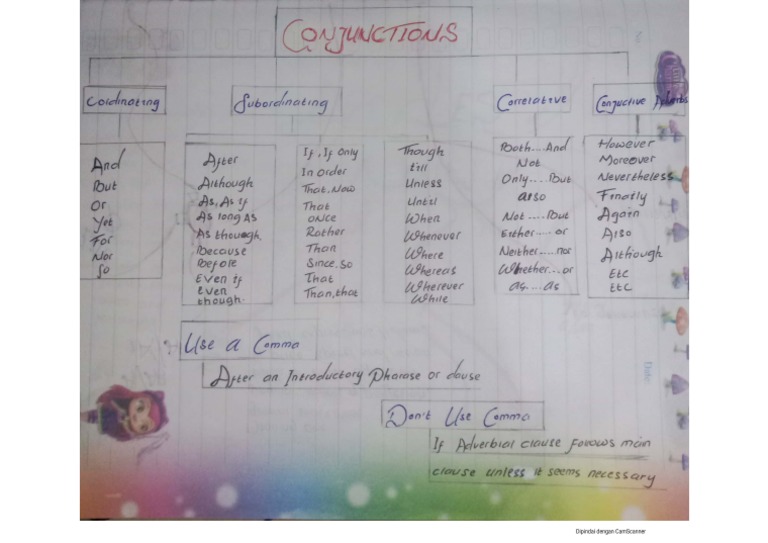 CONJUNCTIONS
Cordinating
Subordinating
Correlative
Conjuctive Adverbs
And
But
Or
Yet
For
Nor
So
After
Although
As, As if
As long As
As though.
Because
Before
Even if
Even
though.
If, If Only
In order
That, Now
That
ONCE
Rather
Than
Since, So
That
Than, that
Though
till
Unless
Until
When
Whenever
Where
Whereas
Wherever
While
Both....And
Not
Only....But
also
Not.....But
Either....or
Neither....nor
Whether...or
as....as
However
Moreover
Nevertheless
Finally
Again
Also
Although
Etc
Etc
Use a Comma
After an Introductory Pharase or clause
Don't Use Comma
If Adverbial clause follows main
clause unless it seems necessary
No:
Date:
Dipindai dengan CamScanner